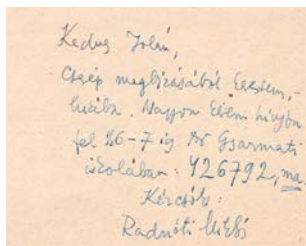 Kedves Zoltán,
Csép megbízásából kerestem,-
hiába. Nagyon kérem hívjon
fel ½6-7 ig Gyarmati
iskolában: 426792, ma
Kézcsók:
Radnóti Miklós